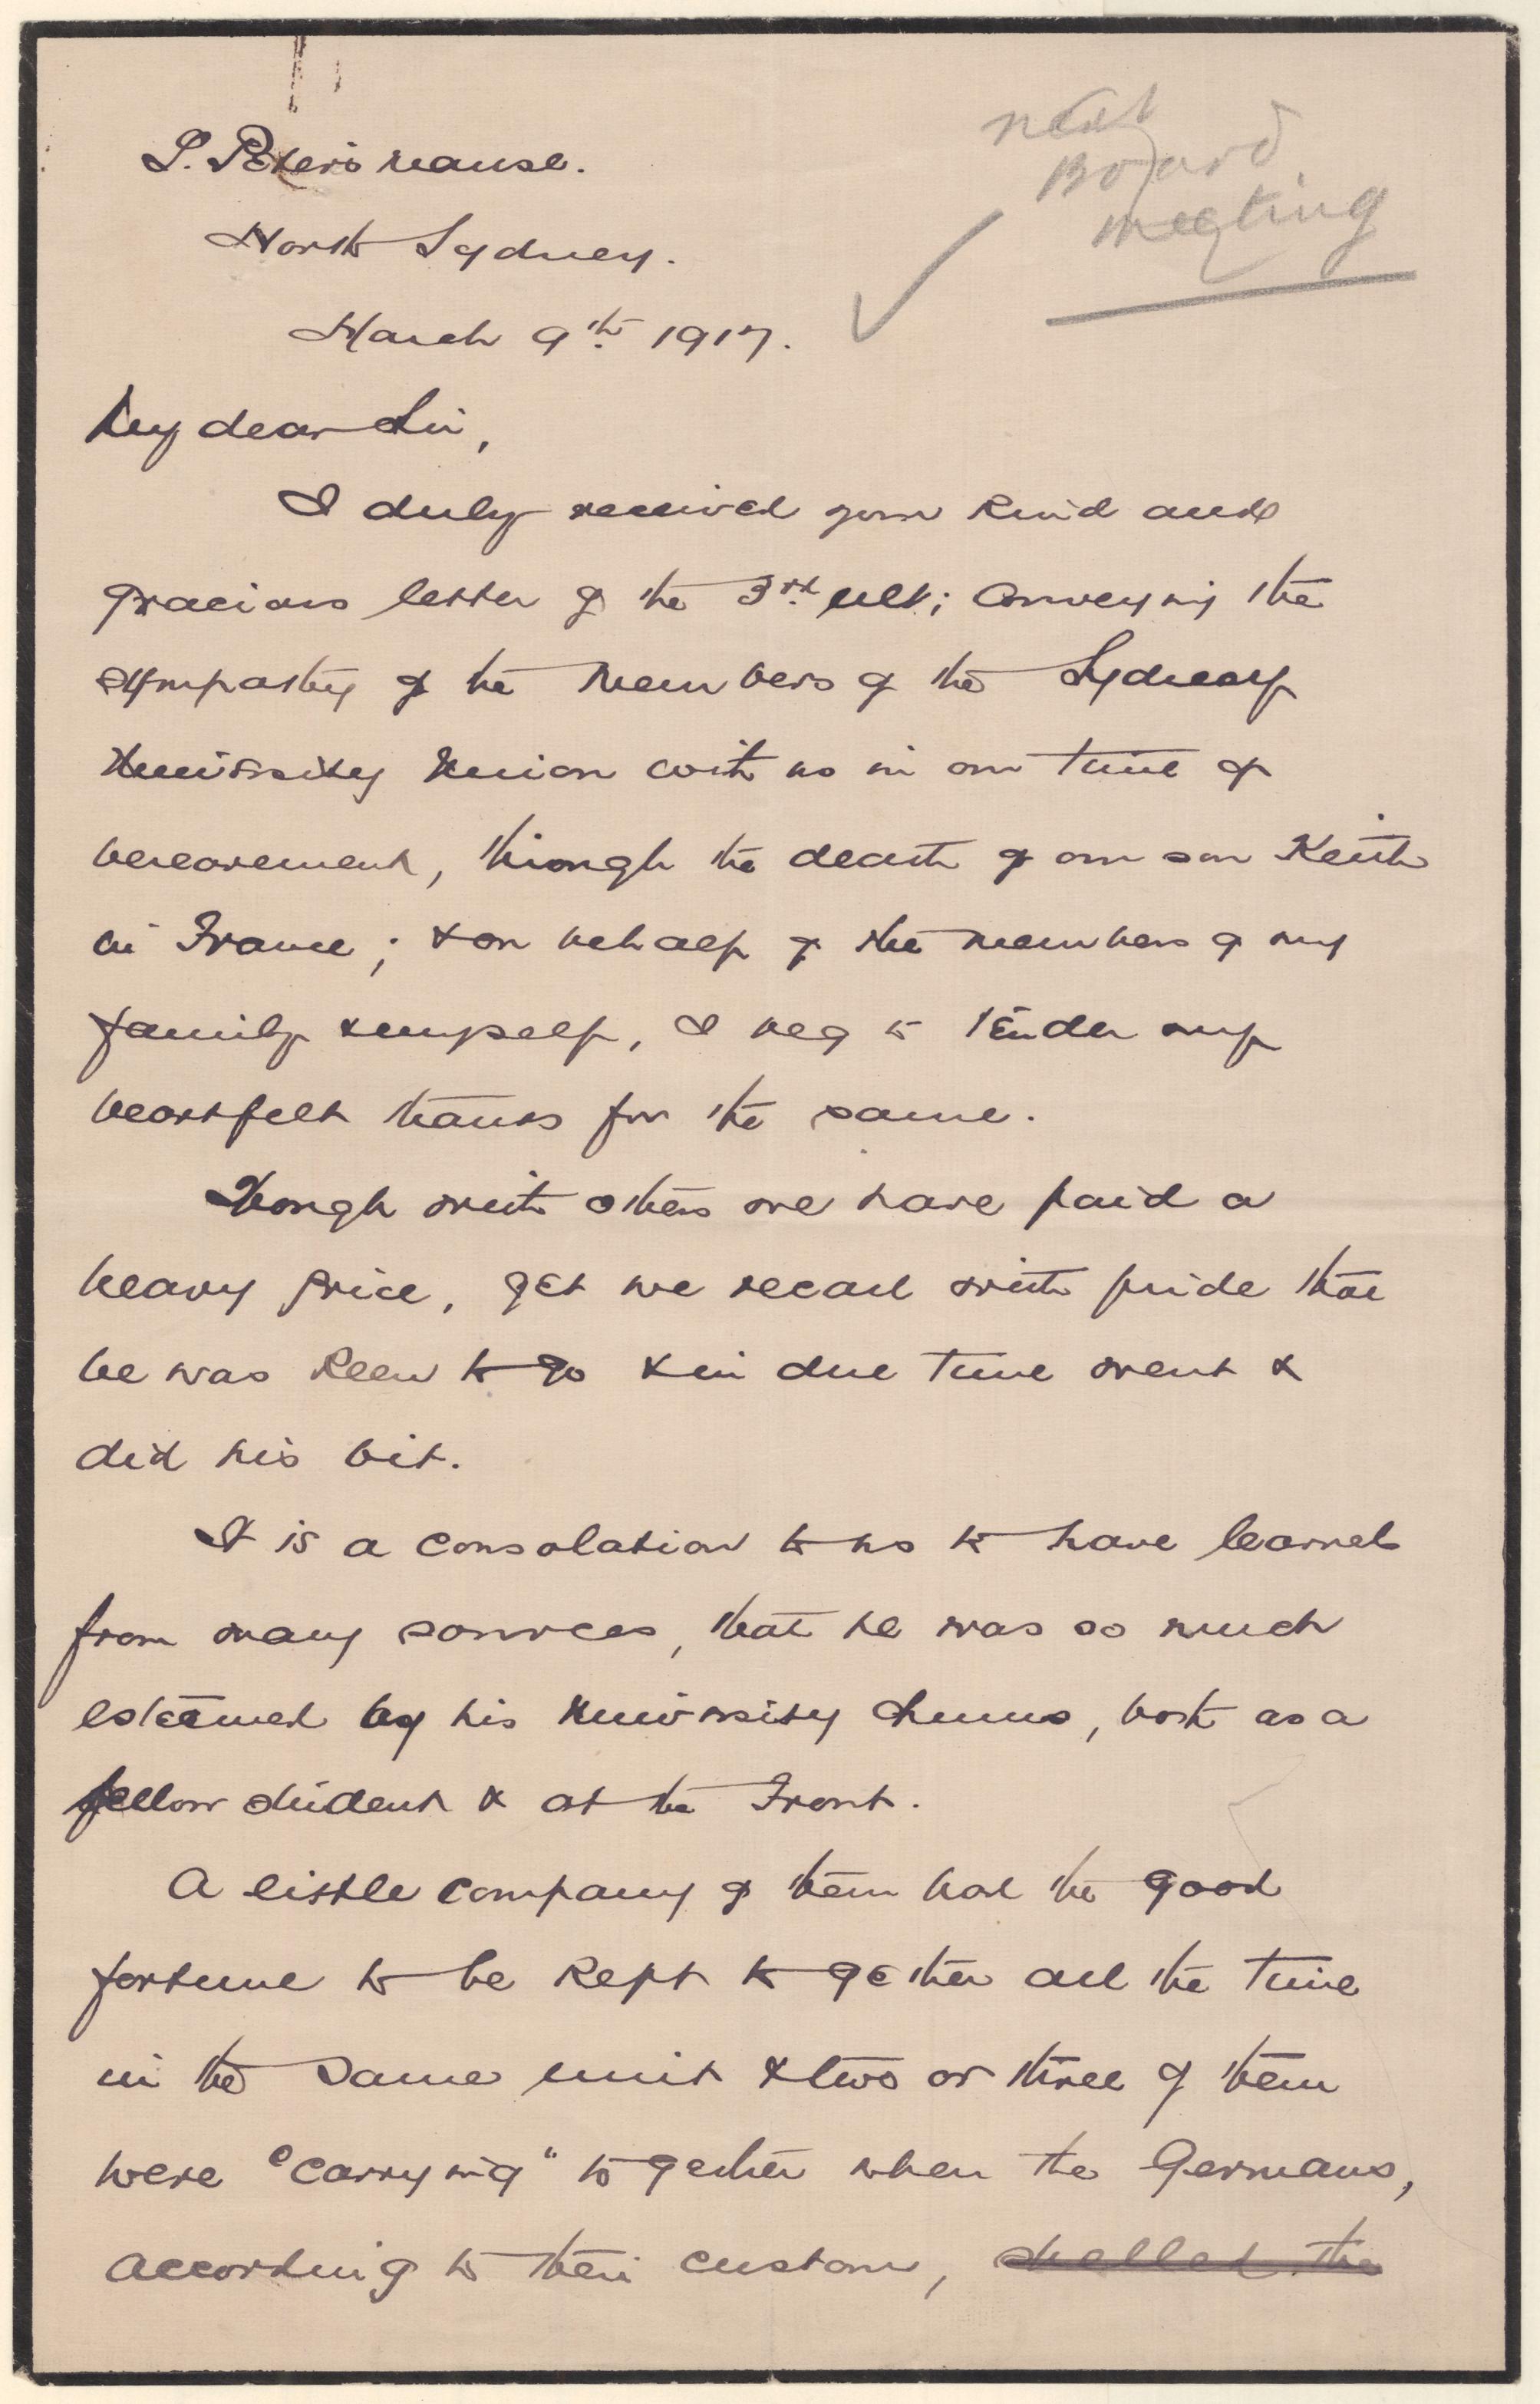 S. Peter's Manse.
North Sydney.
March 9th 1917.
next
Board
meeting
My dear Sir,
I duly received your kind and
gracious letter of the 3rd ult; conveying the
sympathy of the members of the Sydney
University Union with us in our time of
bereavement, through the death of our son Keith
in France; & on behalf of the members of my
family & myself, I beg to tender my
heartfelt thanks for the same.
Though with others we have paid a
heavy price, yet we recall with pride that
he was keen to go & in due time went &
did his bit.
It is a consolation to us to have learned
from many sources, that he was so much
esteemed by his University chums, both as a
fellow student & at the Front.
A little company of them had the good
fortune to be kept together all the time
in the same unit & two or three of them
were "carrying" together when the Germans,
according to their custom, shelled the